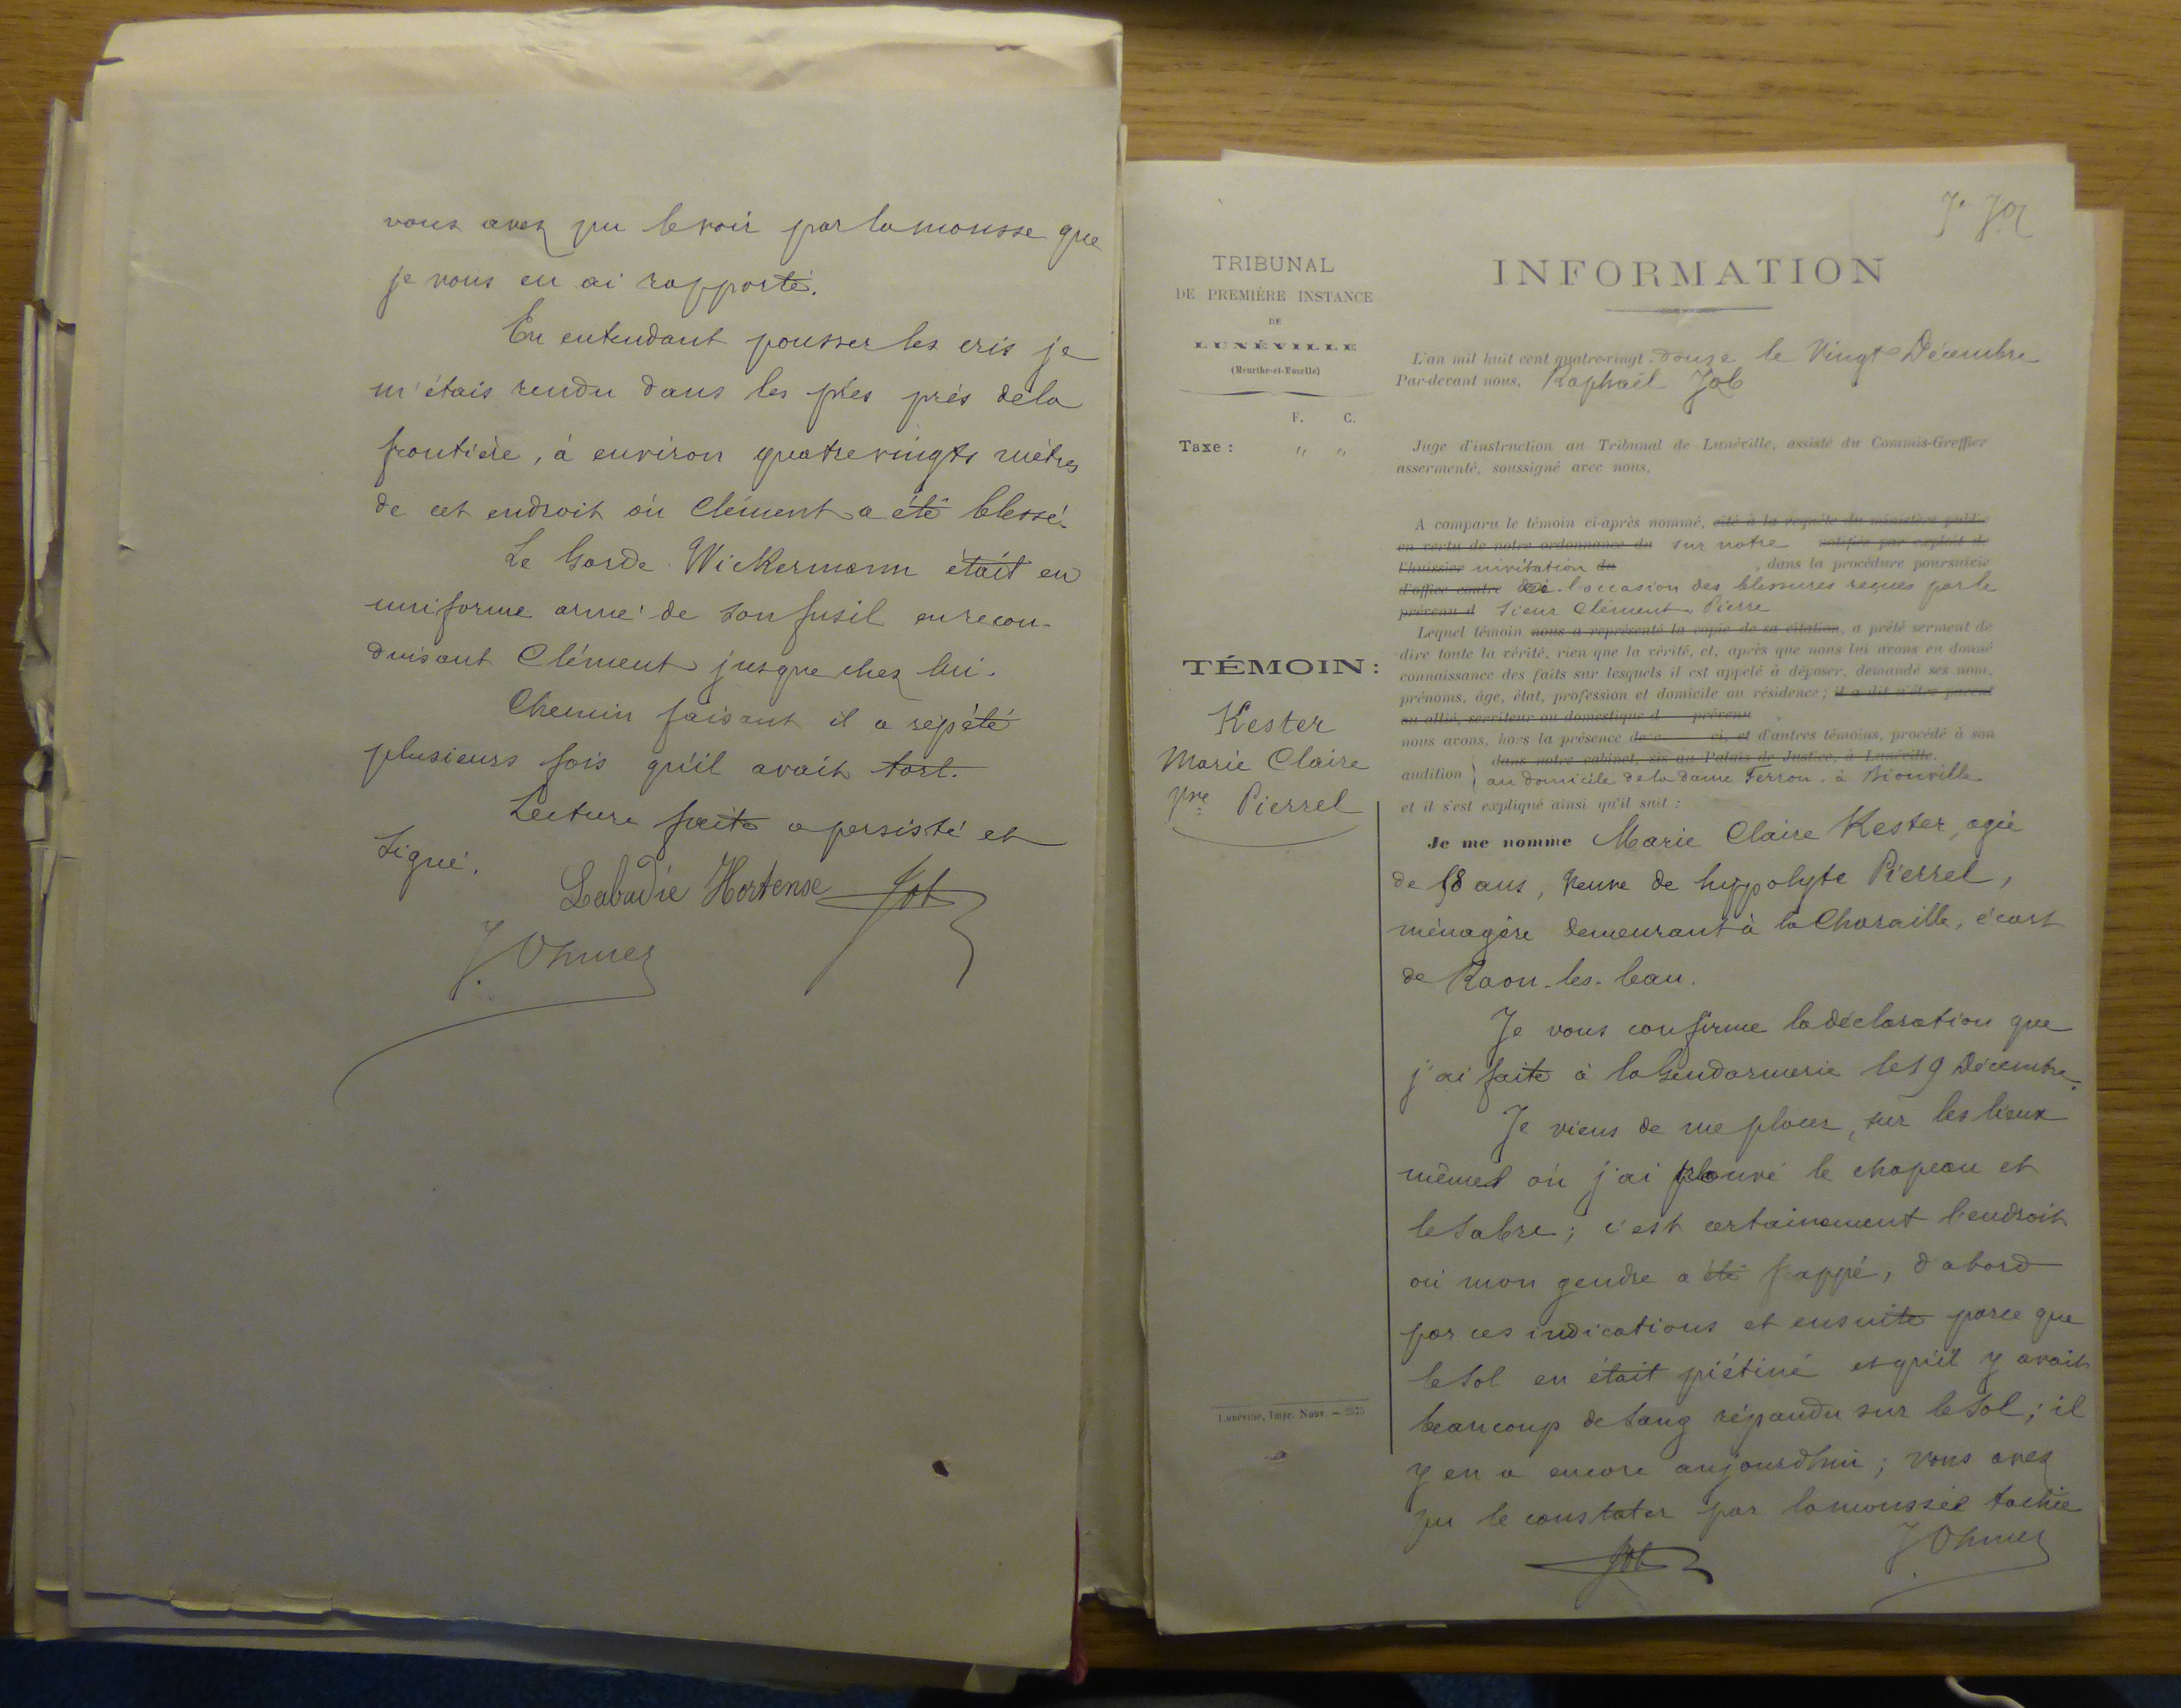 vous avez pu le voir par la mousse que
je vous en ai rapporté.
En entendant pousser les cris je
m'étais rendu dans les prés près de la
frontière, à environ quatre vingts mètres
de cet endroit où Clément a été blessé.
Le Garde Wickermann était en
uniforme armé de son fusil en recon-
duisant Clément jusque chez lui.
Chemin faisant il a répété
plusieurs fois qu'il avait tort.
Lecture faite a persisté et
signé.
Labadie Hortense Job
J. Ohmer
TRIBUNAL
DE PREMIÈRE INSTANCE
DE
LUNÉVILLE
(Meurthe-et-Moselle)
F. C.
Taxe : " "
TÉMOIN :
Kester
Marie Claire
Vve Pierrel
Lunéville, Impr. Nouv. —
INFORMATION
L'an mil huit cent quatre-vingt-douze le Vingt Décembre
Par-devant nous, Raphaël Job
Juge d'instruction au Tribunal de Lunéville, assisté du Commis-Greffier
assermenté, soussigné avec nous,
A comparu le témoin ci-après nommé, cité à la requête du ministère public
en vertu de notre ordonnance du sur notre notifiée par exploit de
l'huissier invitation du , dans la procédure poursuivie
d'office contre à l'occasion des blessures reçues par le
prévenu d sieur Clément, Pierre
Lequel témoin nous a représenté la copie de sa citation, a prêté serment de
dire toute la vérité, rien que la vérité, et, après que nous lui avons eu donné
connaissance des faits sur lesquels il est appelé à déposer, demandé ses nom,
prénoms, âge, état, profession et domicile ou résidence ; il a dit n'être parent
ou allié, serviteur ou domestique d prévenu
nous avons, hors la présence de ci, et d'autres témoins, procédé à son
dans notre cabinet, sis au Palais de Justice, à Lunéville.
audition au domicile de la dame Ferron à Bionville
et il s'est expliqué ainsi qu'il suit :
Je me nomme Marie Claire Kester, agée
de 58 ans, Veuve de hyppolyte Pierrel,
ménagère demeurant à la Charaille, écart
de Raon-les-leau.
Je vous confirme la déclaration que
j'ai faite à la Gendarmerie le 19 Décembre.
Je viens de me placer, sur les lieux
mêmes où j'ai trouvé le chapeau et
le sabre ; c'est certainement l'endroit
où mon gendre a été frappé, d'abord
par ces indications et ensuite parce que
le sol en était piétiné et qu'il y avait
beaucoup de sang répandu sur le sol ; il
y en a encore aujourdhui ; vous avez
pu le constater par la mousse tachée
Job J. Ohmer